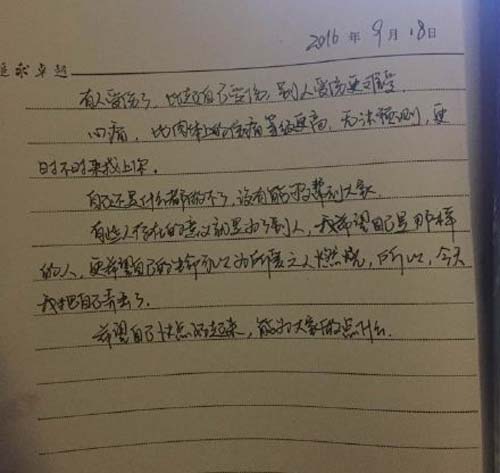 2016 年 9 月 18 日
追求卓越
有人受伤了，比起自己受伤，别人受伤更难受.
心痛，比肉体上的伤痛等级更高，无法预测，更
时不时来找上你.
自己还是什么都做不了，没有能够帮到大家
有些人存在的意义就是为了别人，我希望自己是那样
的人，更希望自己的生命可以为所爱之人燃烧，所以，今天
我把自己弄丢了.
希望自己快点好起来，能为大家做点什么.